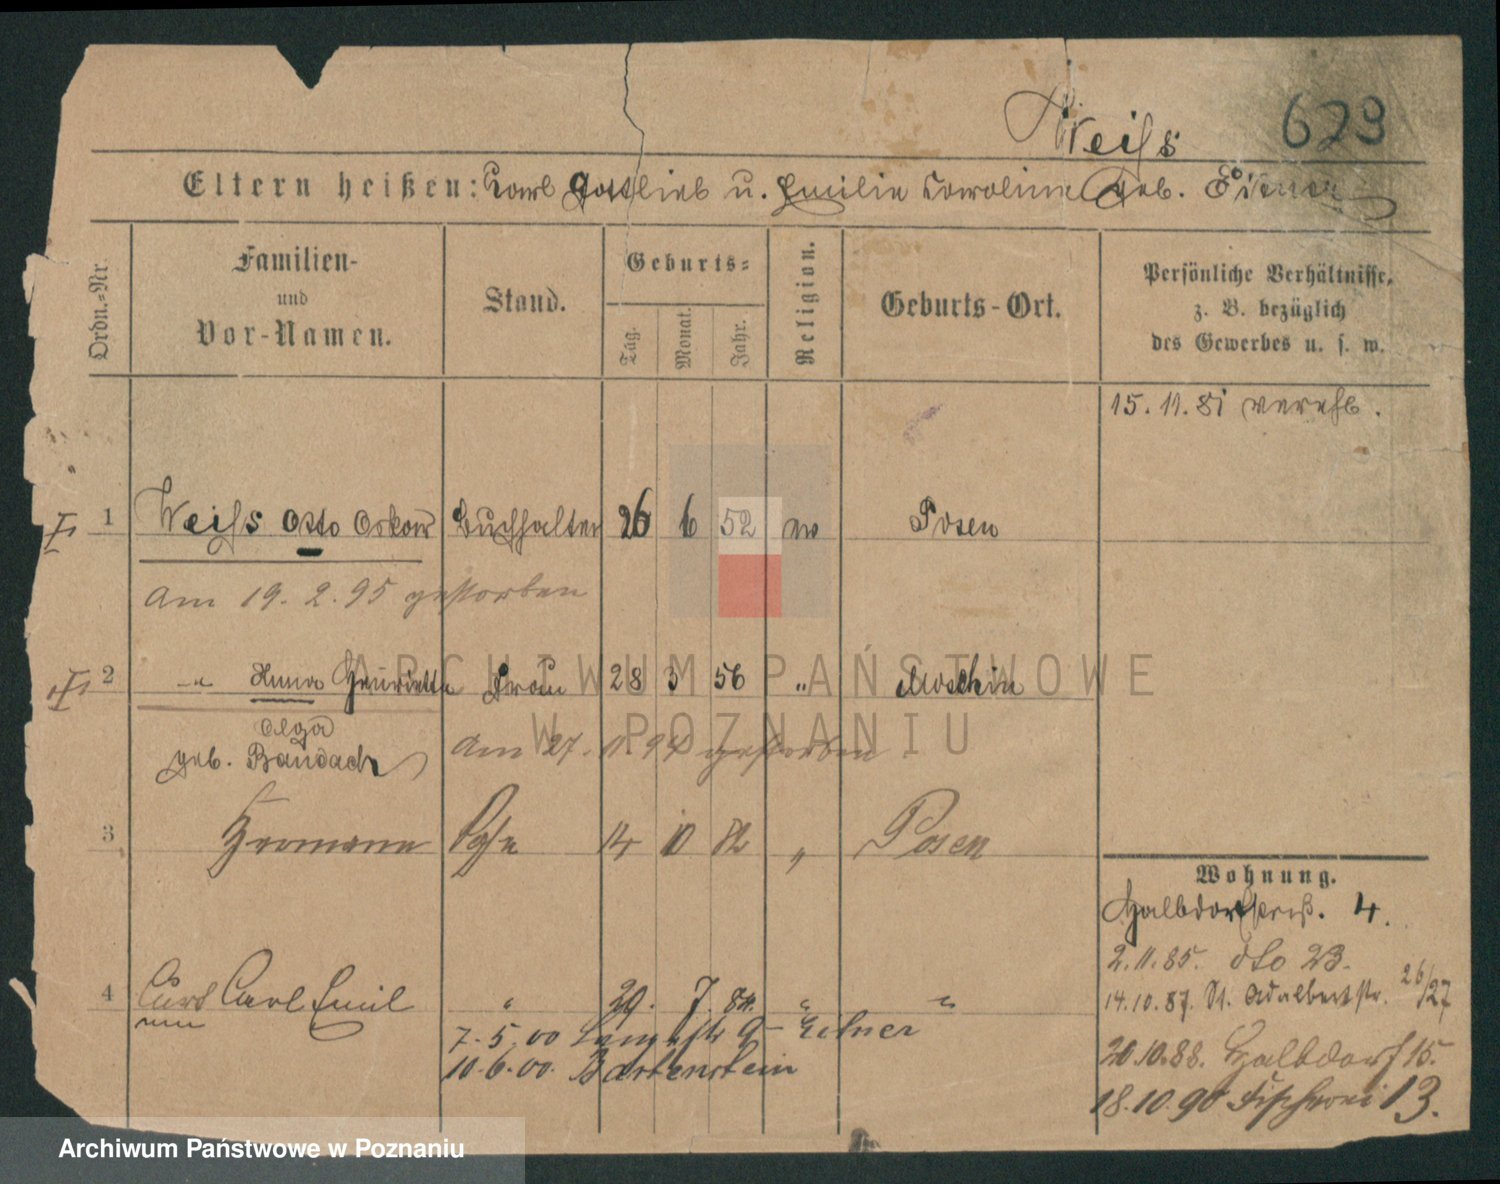 Weiss 629
Eltern heißen: Carl Gottlieb u. Emilie Caroline geb. Eitner
Ordn.=Nr.
Familien-
und
Vor-Namen.
Stand.
Geburts=
Tag.
Monat.
Jahr.
Religion.
Geburts-Ort.
Persönliche Verhältnisse,
z. B. bezüglich
des Gewerbes u. s. w.
15. 11. 81 verehl.
1 Weiss Otto Oskar Buchhalter 26 6 52 ev Posen
am 19. 2. 95 gestorben
2 -"- Anna Henriette Frau 28 3 56 " Moschin
Olga
geb. Baudach
am 27. 11 94 gestorben
3 Hermann Sohn 14 10 82 " Posen
Wohnung.
Halbdorfstraß. 4.
2. 11. 85. dto 23.
14. 10. 87. St. Adalbertstr. 26/27
20. 10. 88. Halbdorf 15.
18. 10. 90 Fischerei 13.
4 Curt Carl Emil " 20. 7. 84. " "
7. 5. 00 9 Eitner
10. 6. 00. Bartenstein
ARCHIWUM PAŃSTWOWE
W POZNANIU
Archiwum Państwowe w Poznaniu